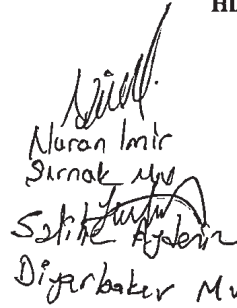 HD
Nuran İmir
Şırnak Mv
Salihe Aydeniz
Diyarbakır Mv